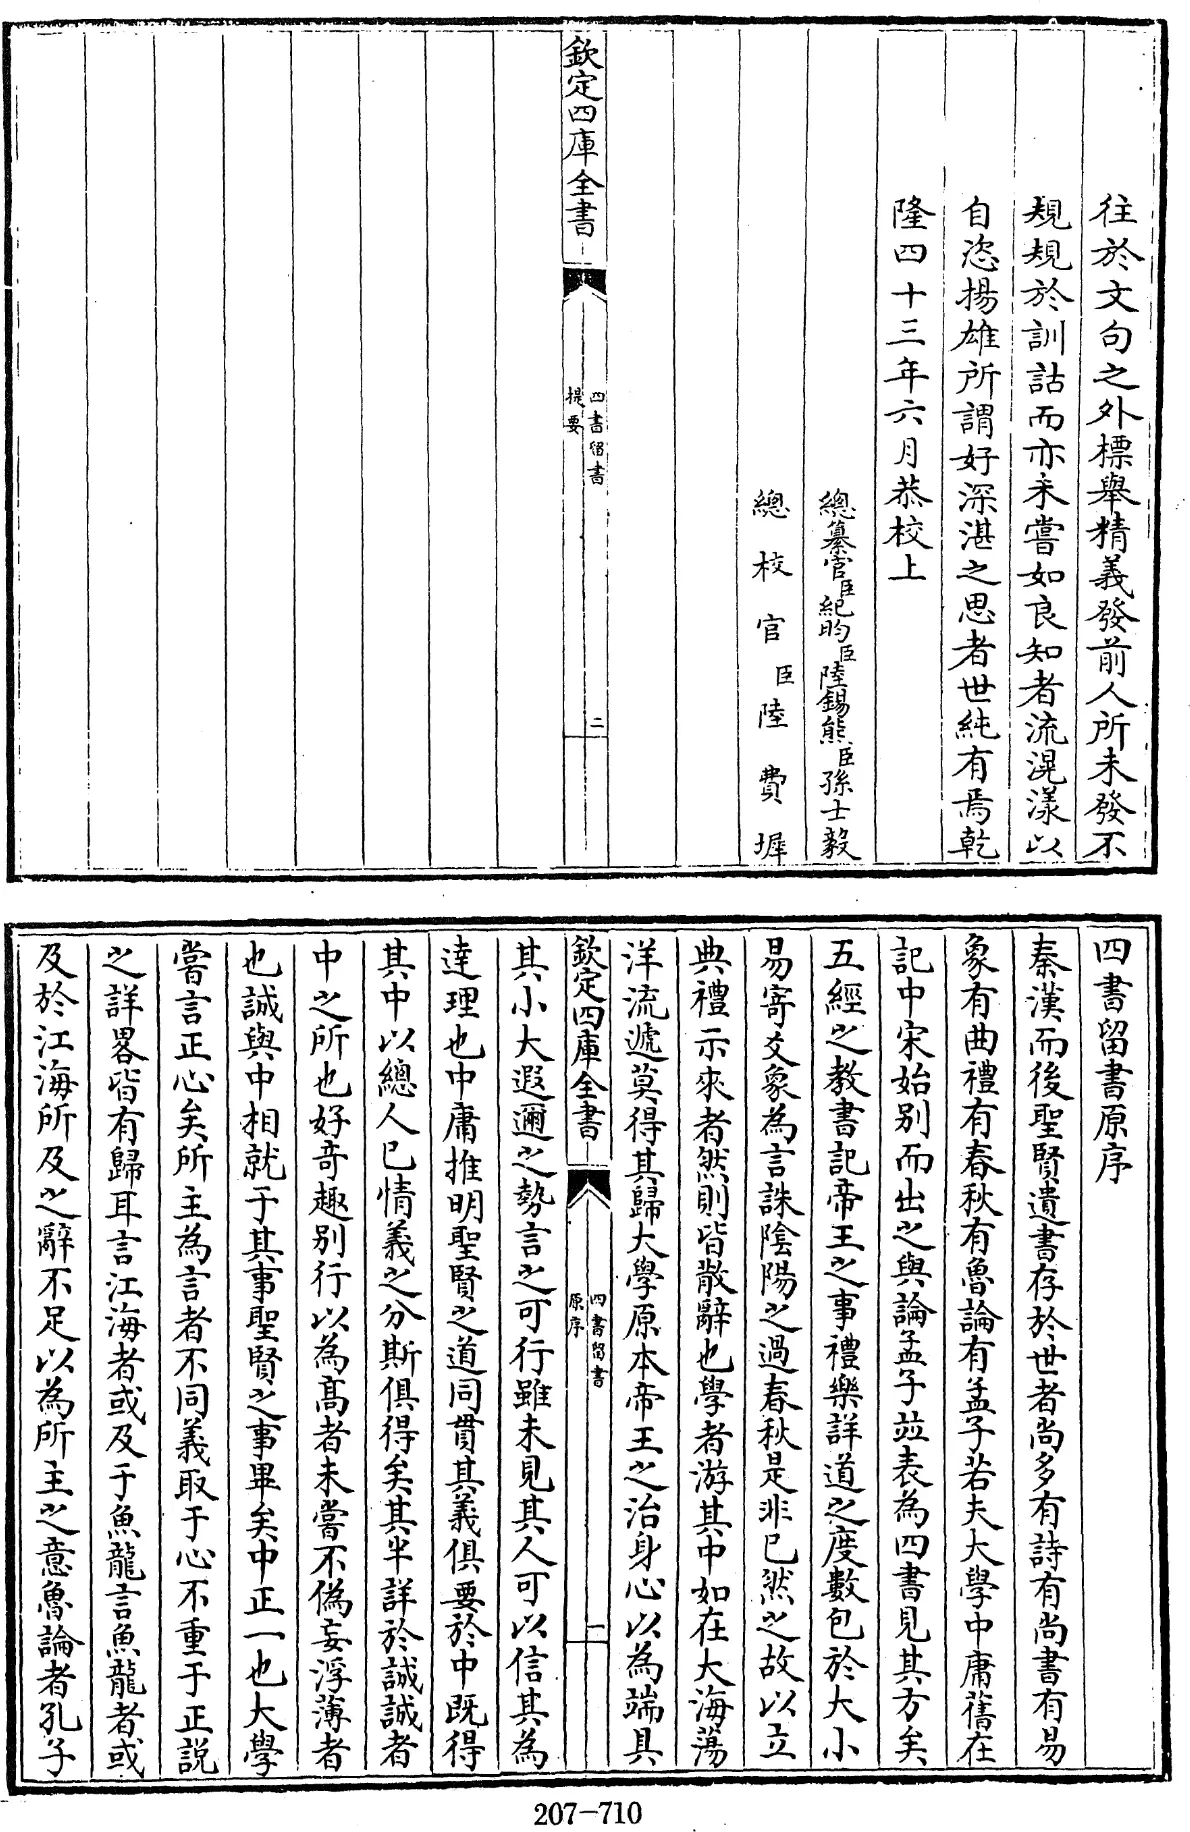 往於文句之外標舉精義發前人所未發不
規規於訓詁而亦未嘗如良知者流滉漾以
自恣揚雄所謂好深湛之思者世純有焉乾
隆四十三年六月恭校上
總纂官臣紀昀臣陸錫熊臣孫士毅
總校官臣陸費墀
欽定四庫全書
四書留書
提要
二
四書留書原序
秦漢而後聖賢遺書存於世者尚多有詩有尚書有易
象有曲禮有春秋有魯論有孟子若夫大學中庸舊在
記中宋始别而出之與論孟子並表為四書見其方矣
五經之教書記帝王之事禮樂詳道之度數包於大小
易寄爻象為言誅陰陽之過春秋是非已然之故以立
典禮示來者然則皆散辭也學者游其中如在大海蕩
洋流遞莫得其歸大學原本帝王之治身心以為端具
欽定四庫全書
四書留書
原序
一
其小大遐邇之勢言之可行雖未見其人可以信其為
達理也中庸推明聖賢之道同貫其義俱要於中既得
其中以總人已情義之分斯俱得矣其半詳於誠誠者
中之所也好奇趣别行以為高者未嘗不偽妄浮薄者
也誠與中相就于其事聖賢之事畢矣中正一也大學
嘗言正心矣所主為言者不同義取于心不重于正説
之詳畧皆有歸耳言江海者或及于魚龍言魚龍者或
及於江海所及之辭不足以為所主之意魯論者孔子
207-710